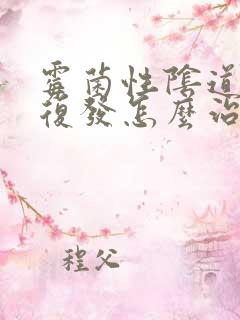 霉菌性陰道
復發怎麼治
程父